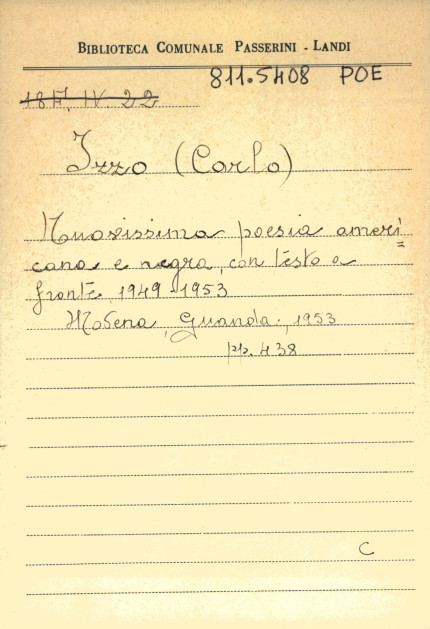 BIBLIOTECA COMUNALE PASSERINI - LANDI
811.5408 POE
18 F. IV. 22
Izzo (Carlo)
Nuovissima poesia ameri=
cana e negra, con testo a
fronte, 1949-1953
Modena, Guanda, 1953
pp. 438
C